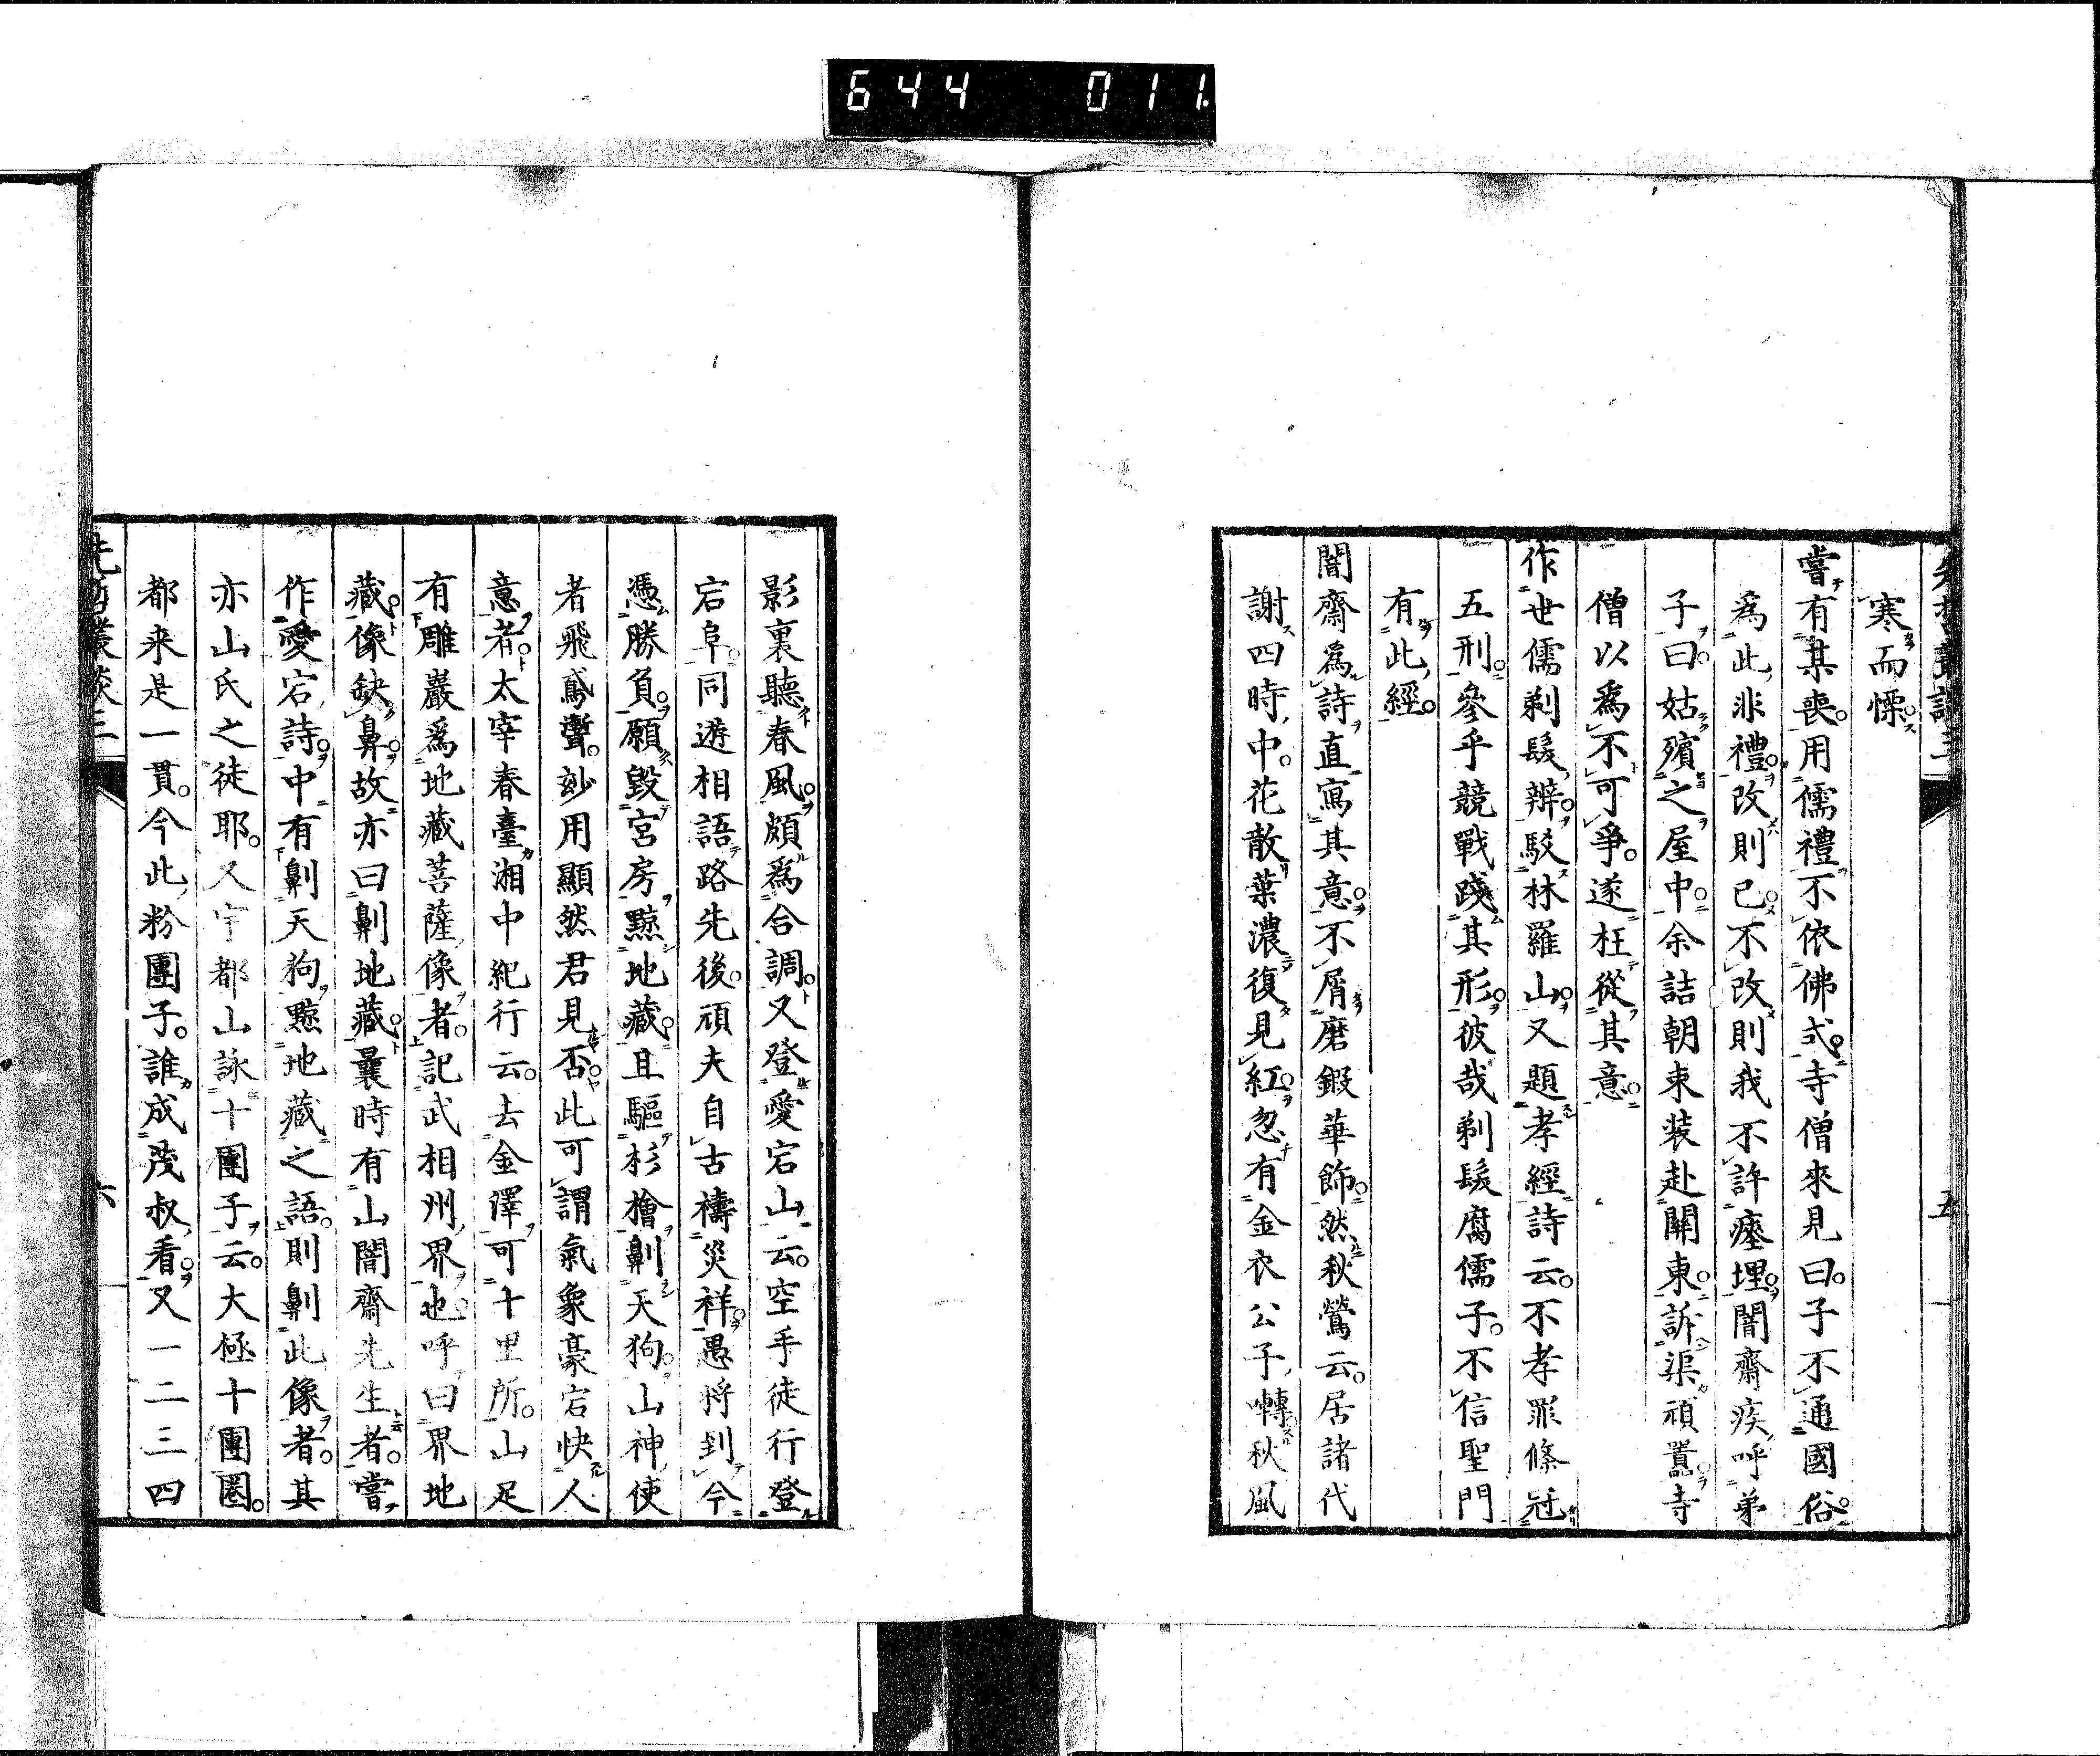 644 011
寒而慄
嘗有某喪用儒禮不依佛式寺僧來見曰子不通國俗
爲此非禮改則已不改則我不許瘞埋闇齋疾呼弟
子曰姑殯之屋中余詰朝束装赴關東訴渠頑嚚寺
僧以爲不可爭遂枉從其意
作世儒剃髮辨駁林羅山又題孝經詩云不孝罪條冠
五刑參乎競戰踐其形彼哉剃髮腐儒子不信聖門
有此經
闇齋爲詩直寫其意不屑磨鍜華飾然秋鶯云居諸代
謝四時中花散葉濃復見紅忽有金衣公子囀秋風
五
影裏聽春風頗爲合調又登愛宕山云空手徒行登
宕阜同遊相語路先後頑夫自古禱災祥愚將到今
憑勝負願毀宮房黥地藏且驅杉檜劓天狗山神使
者飛鳶聲妙用顯然君見否此可謂氣象豪宕快人
意者太宰春臺湘中紀行云去金澤可十里所山足
有雕巖爲地藏菩薩像者記武相州界也呼曰界地
藏像缺鼻故亦曰劓地藏曩時有山闇齋先生者嘗
作愛宕詩中有劓天狗黥地藏之語則劓此像者其
亦山氏之徒耶又宇都山詠十團子云大極十團圏
都来是一貫今此粉團子誰成茂叔看又一二三四
先哲叢談三
六